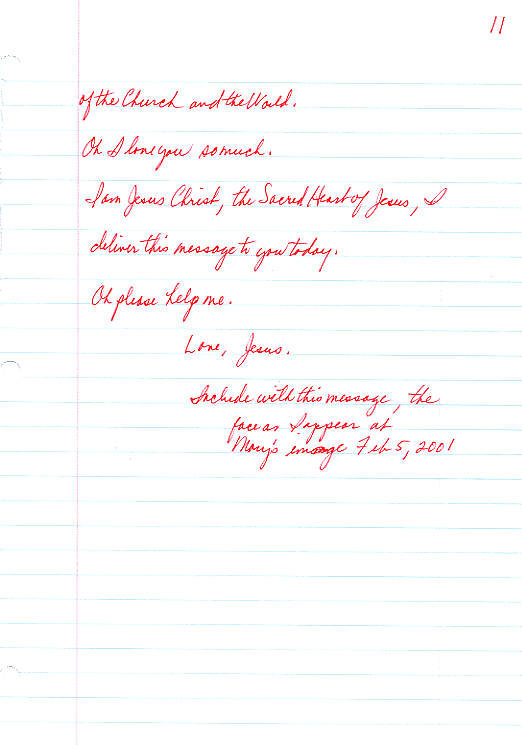 11
of the Church and the World.
Oh I love you so much.
I am Jesus Christ, the Sacred Heart of Jesus, I
deliver this message to you today.
Oh please help me.
Love, Jesus.
Include with this message, the
face as I appear at
Mary's image Feb 5, 2001